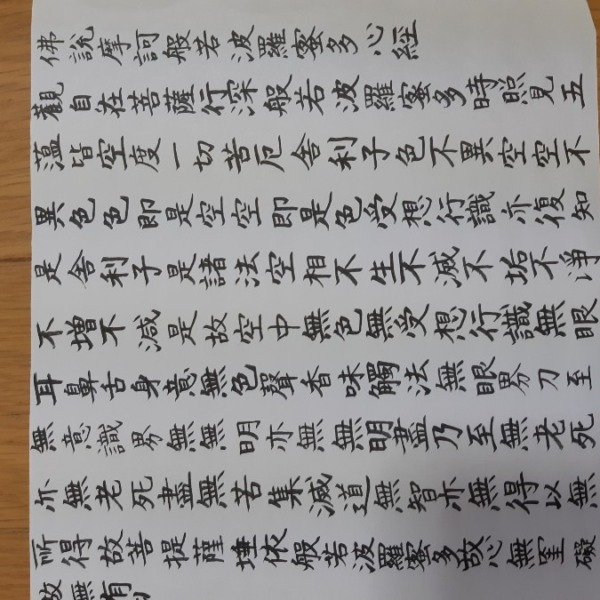 佛說摩訶般若波羅蜜多心經
觀自在菩薩行深般若波羅蜜多時照見五
蘊皆空度一切苦厄舍利子色不異空空不
異色色即是空空即是色受想行識亦復知
是舍利子是諸法空相不生不滅不垢不淨
不增不減是故空中無色無受想行識無眼
耳鼻舌身意無色聲香味觸法無眼界乃至
無意識界無無明亦無無明盡乃至無老死
亦無老死盡無苦集滅道無智亦無得以無
所得故菩提薩埵依般若波羅蜜多故心無罣礙
故無有